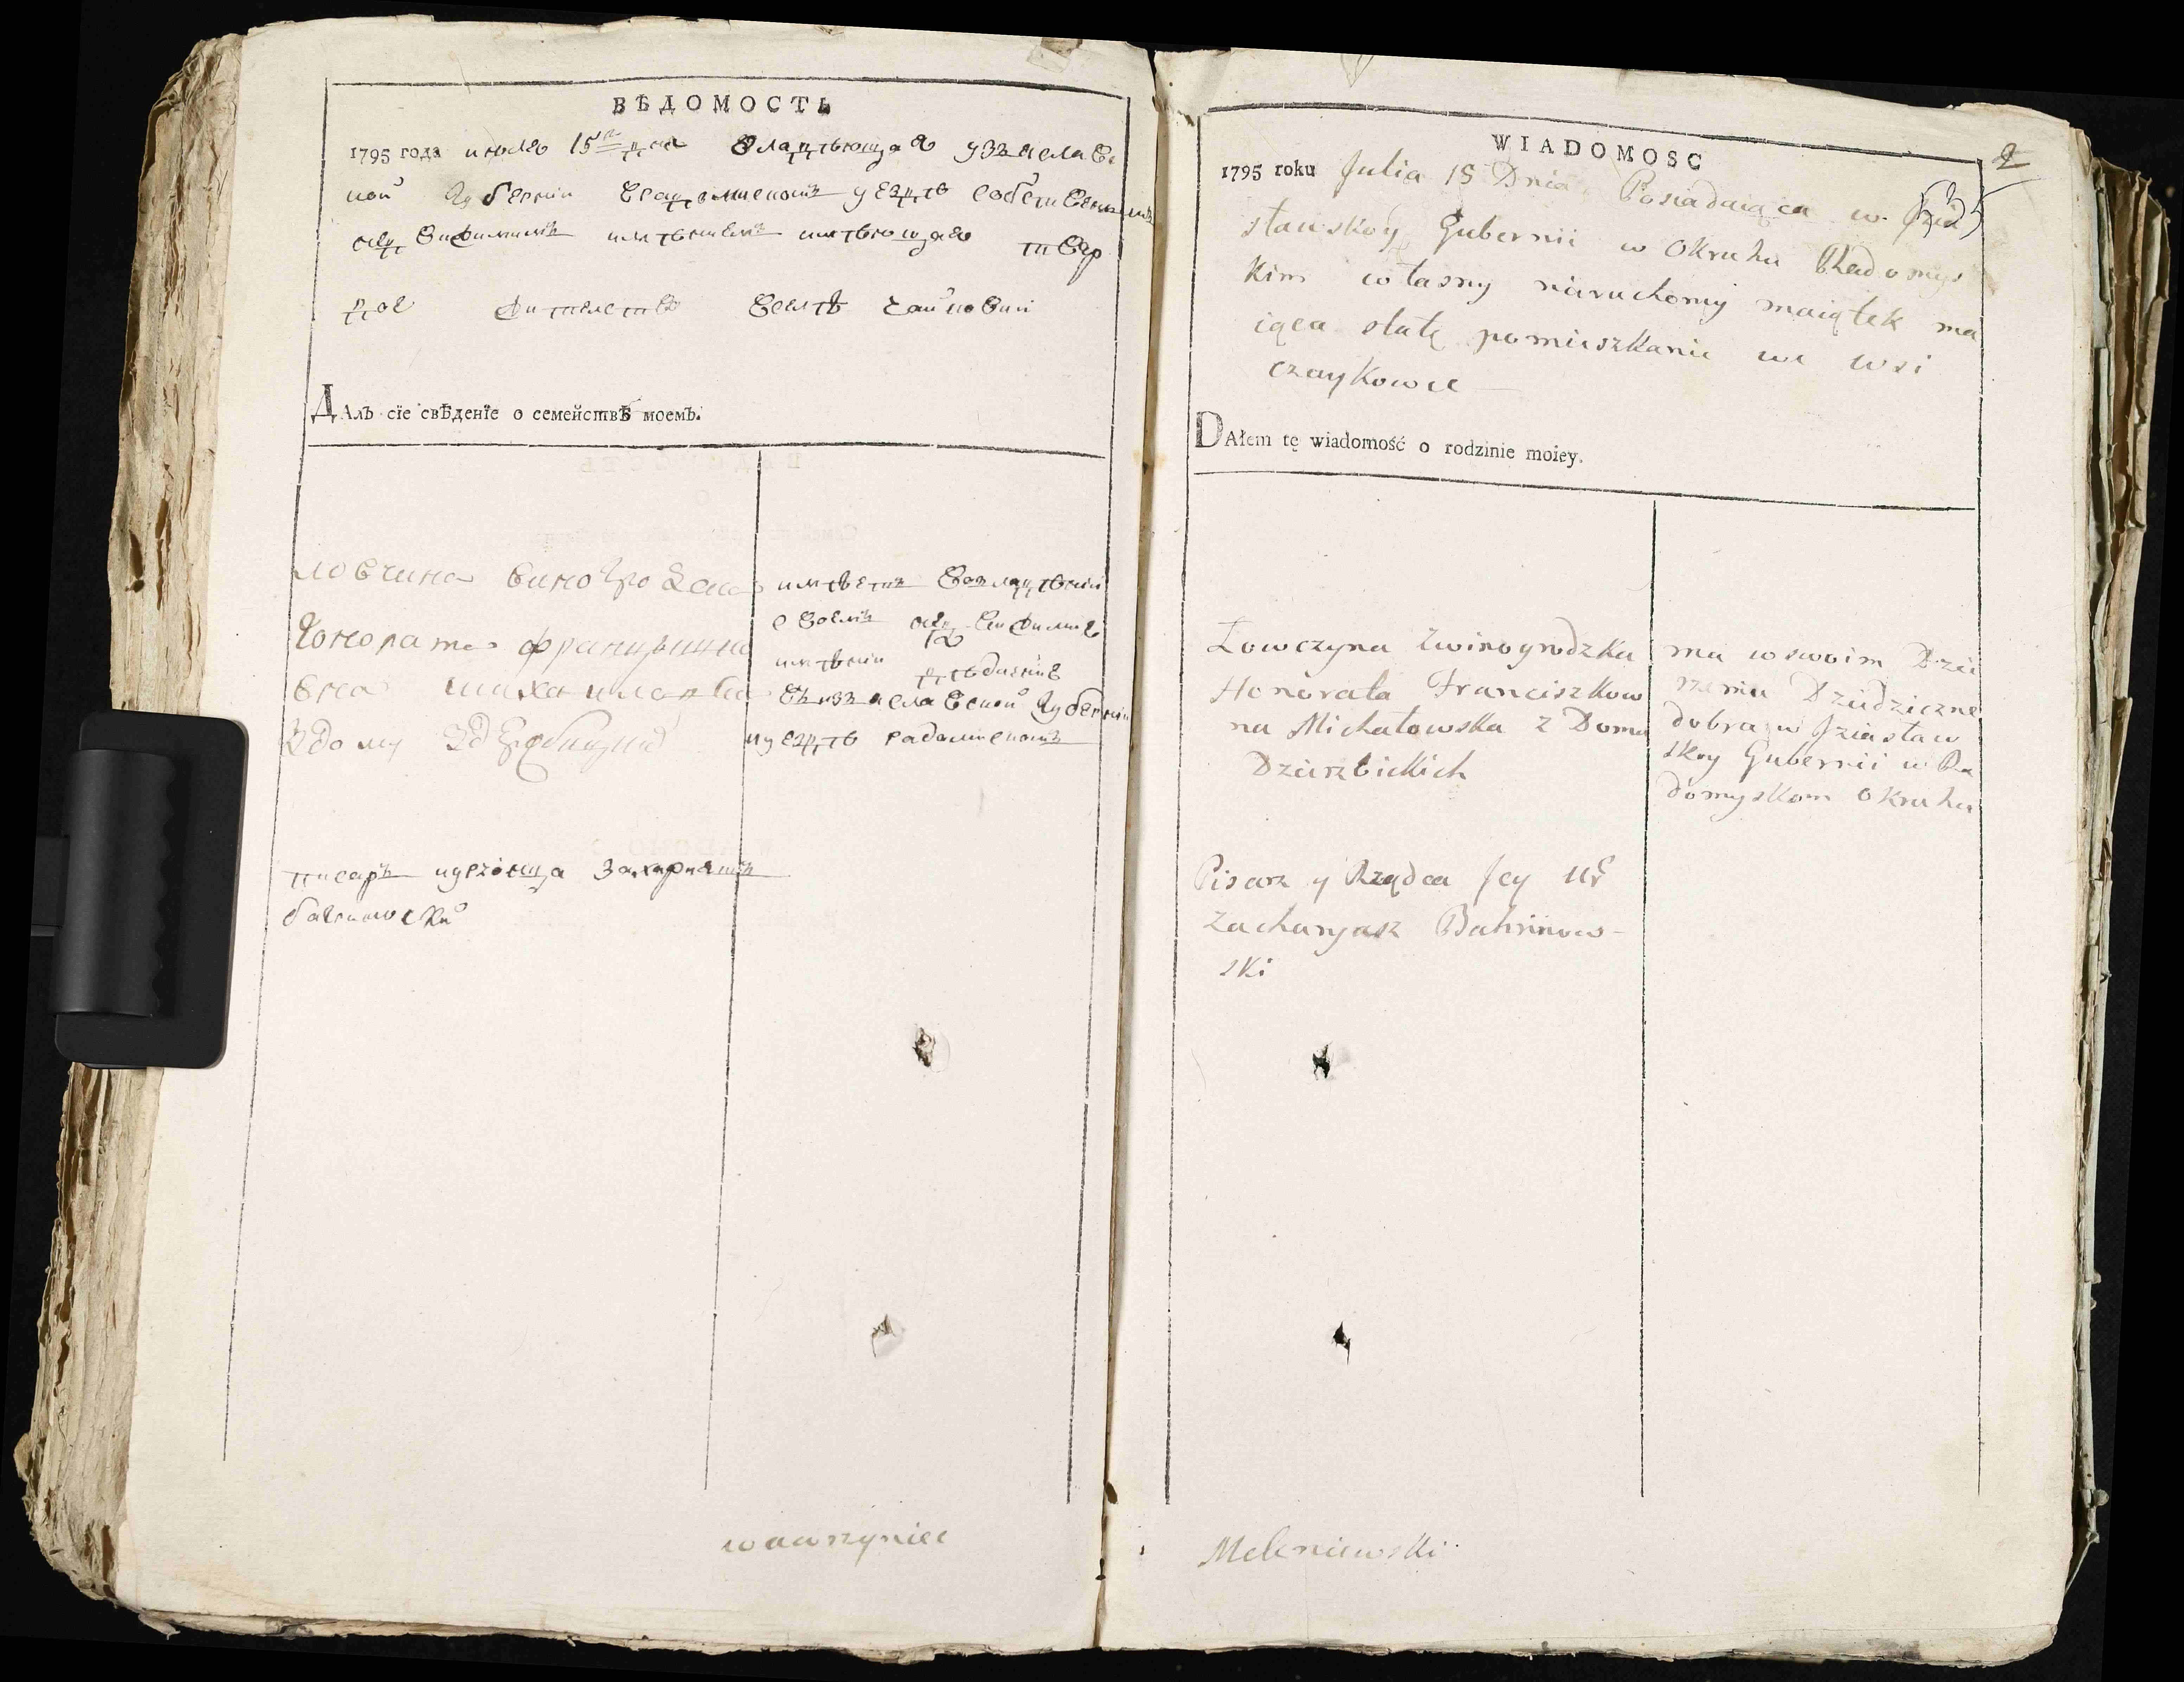 ВѢДОМОСТЬ
1795 года июля 15 дня владѣющая узяслав
ской губернии врадомиском уездѣ собственным
недвижимим имѣнием имѣющая твер
дое жителство веелѣ чайковки
Далъ сїе свѣденїе о семействѣ моемъ.
ловчина
гонората францишко
вна михаиловска
Здому
имѣет вовладѣнии
своем
имѣнии
визяславской губернии
иуездѣ радомиском
писар захариаш
WIADOMOSC
2
1795 roku Julia 15 Dnia Posiadaiąca w Jzia
sławskoy Gubernii w Okruhu Rhadomys
kim własny nieruchomy maiątek ma
iąca stałe pomieszkanie we wsi
czaykowce
DAłem tę wiadomość o rodzinie moiey.
Łowczyna Zwinogrodzka
Honorata Franciszkow
na Michałowska z Domu
Dzierzbickich
ma w swoim Dzier
rzeniu Dziedziczne
dobra w Jziasław
skoy Gubernii w Ra
domyskom Okruhu
Pisarz y Rządca Jey
Zacharyasz Bahrinow-
ski
wawrzyniec
Meleniewski